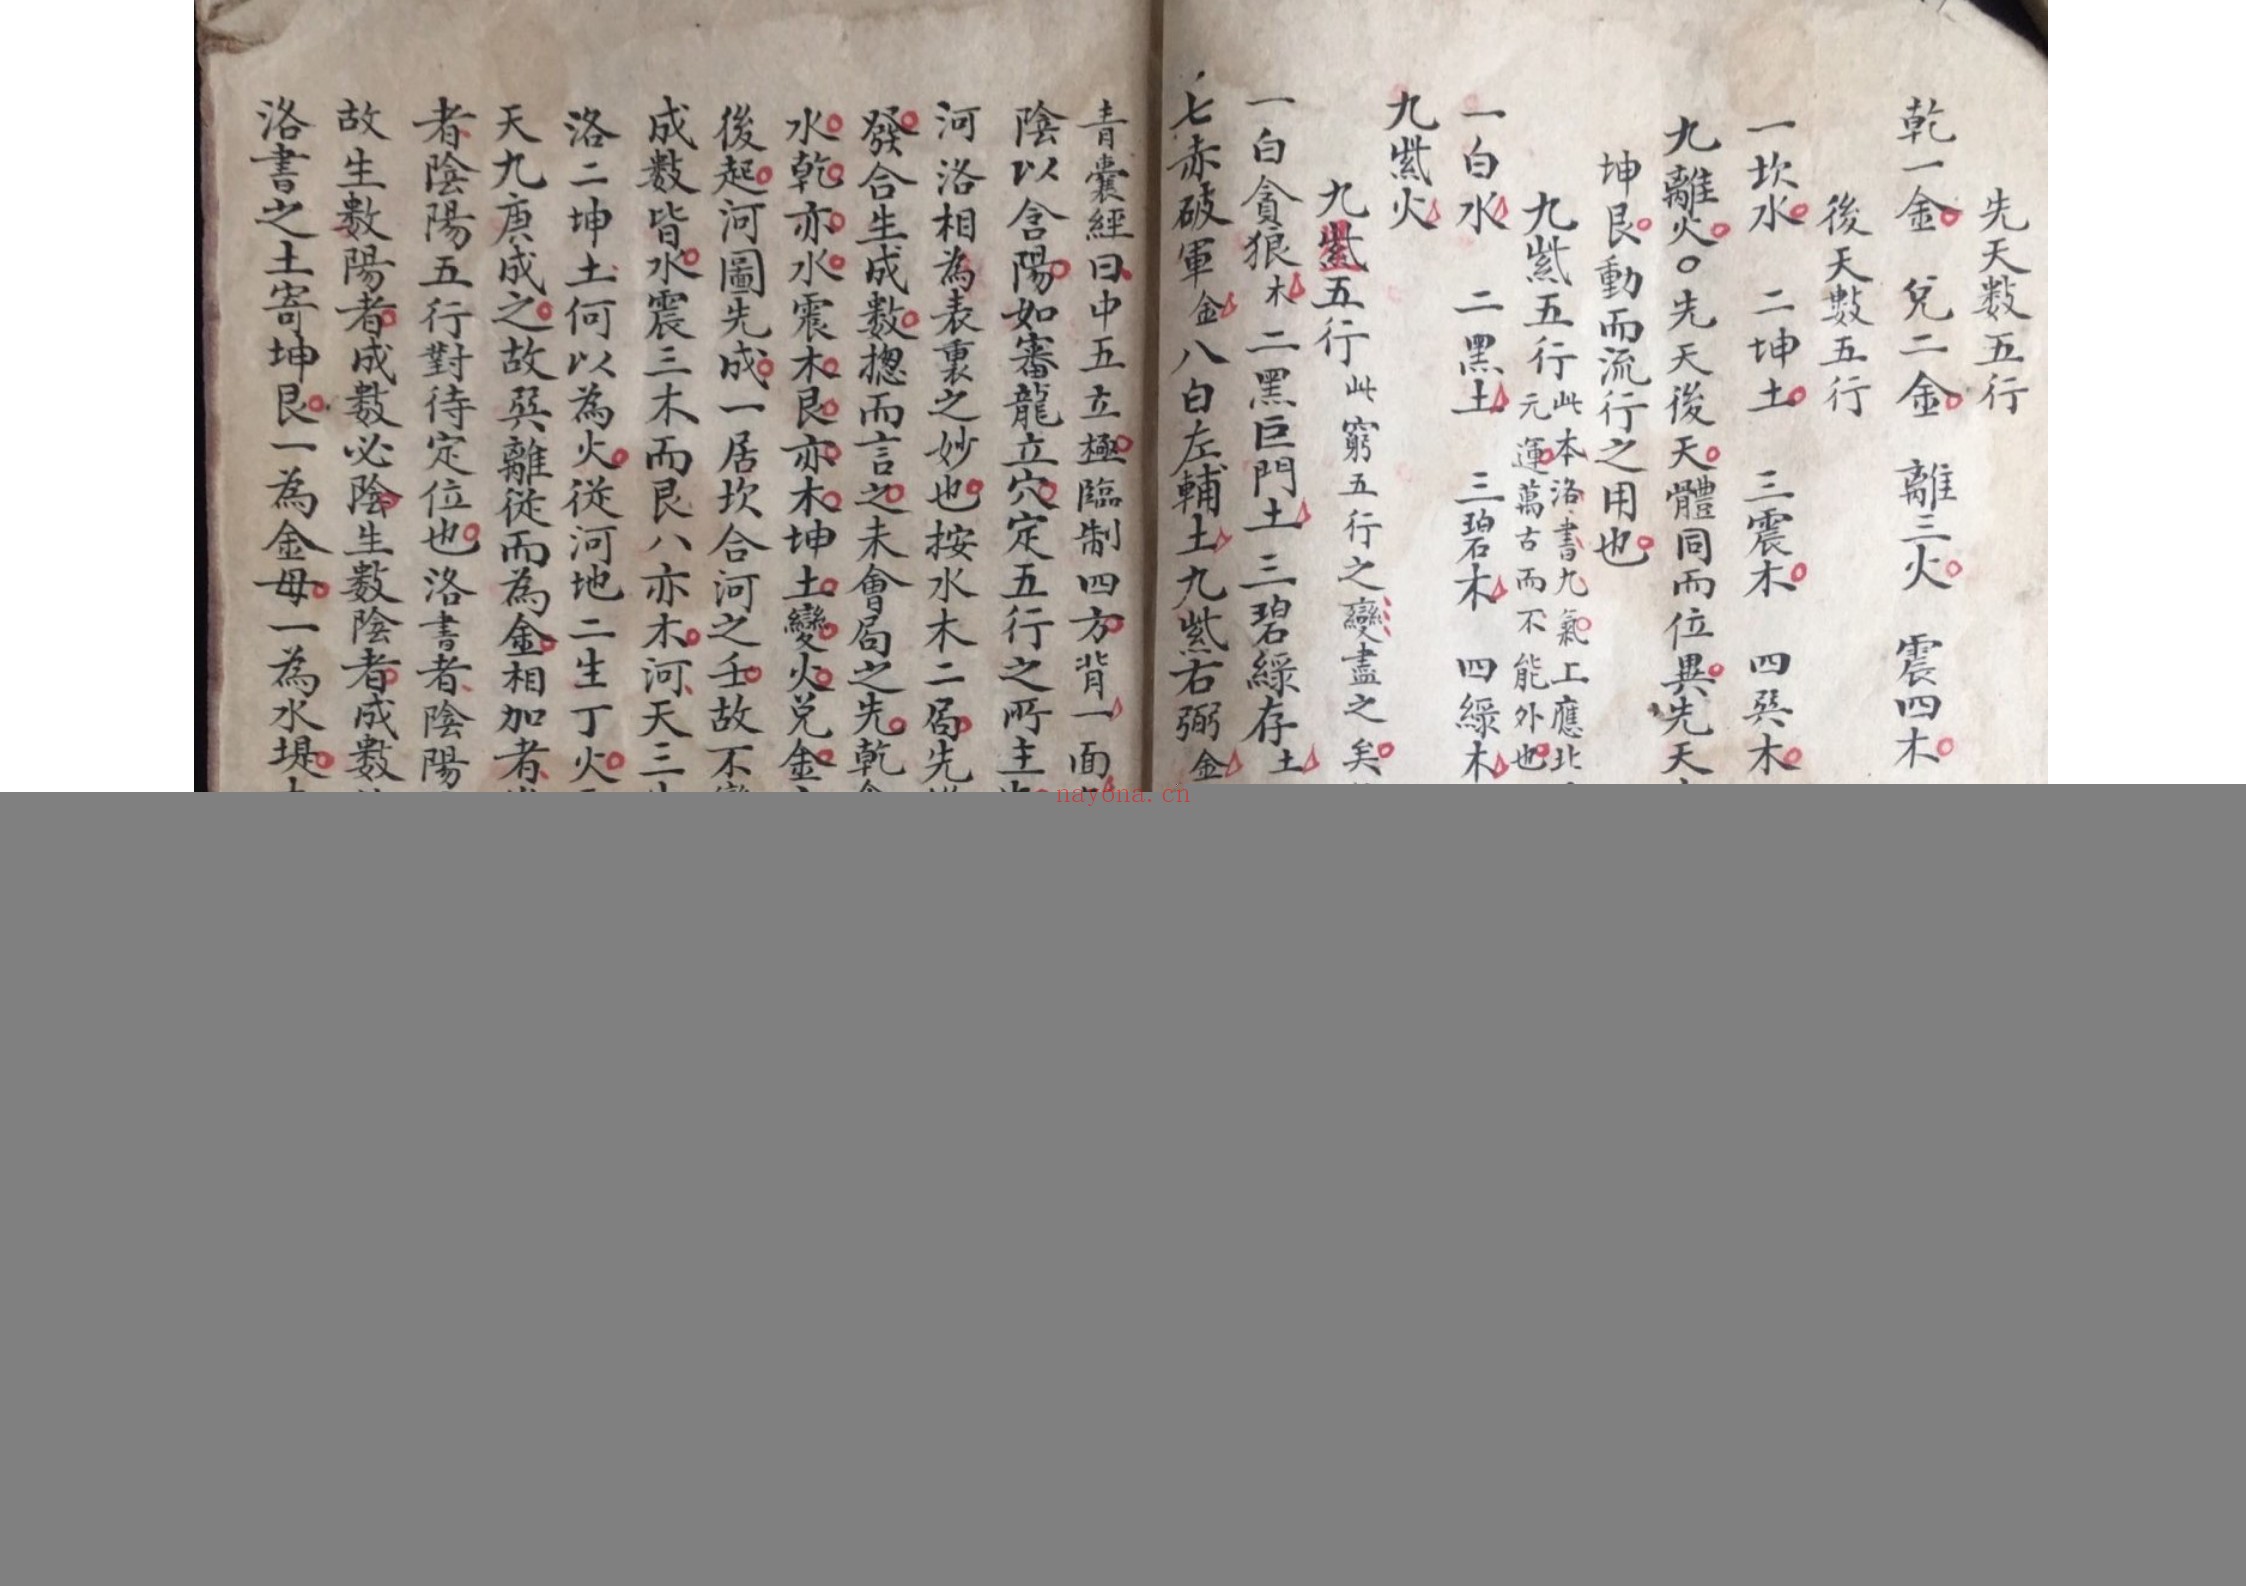 先天数五行
乾一金 兌二金 離三火 震四木
後天數五行
一坎水 二坤土 三震木 四巽木
九離火○先天後天體同而位異先天
坤艮動而流行之用也
九紫五行此本洛書九氣上應北
元運萬古而不能外也
一白水 二黑土 三碧木 四綠木
九紫火
九紫五行此窮五行之變盡之矣
一白貪狼木二黑巨門土三碧綠存土
七赤破軍金八白左輔土九紫右弼金
青囊經曰中五立極臨制四方背一面
陰以含陽如審龍立穴定五行之所主
河洛相為表裏之妙也按水木二局先
發合生成數摠而言之未會局之先乾
水乾亦水震木艮亦木坤土變火兌金
後起河圖先成一居坎合河之壬故不
成數皆水震三木而艮八亦木河天三
洛二坤土何以為火従河地二生丁火
天九庚成之故巽離従而為金相加者
者陰陽五行對待定位也洛書者陰陽
故生數陽者成數必陰生數陰者成數
洛書之土寄坤艮一為金母一為水堤
nayona.cn